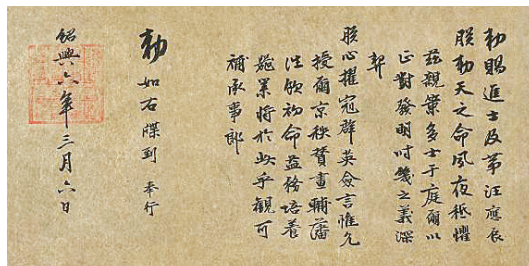 勅賜進士及第汪應辰
朕勅天之命夙夜祗懼
茲親策多士于庭爾以
正對發明時幾之義深
契
朕心擢冠群英僉言惟允
授爾京秩贊畫輔藩
往欽初命益務培養
施將於此乎觀可
補承事郎
勅如右牒到奉行
紹興六年三月六日